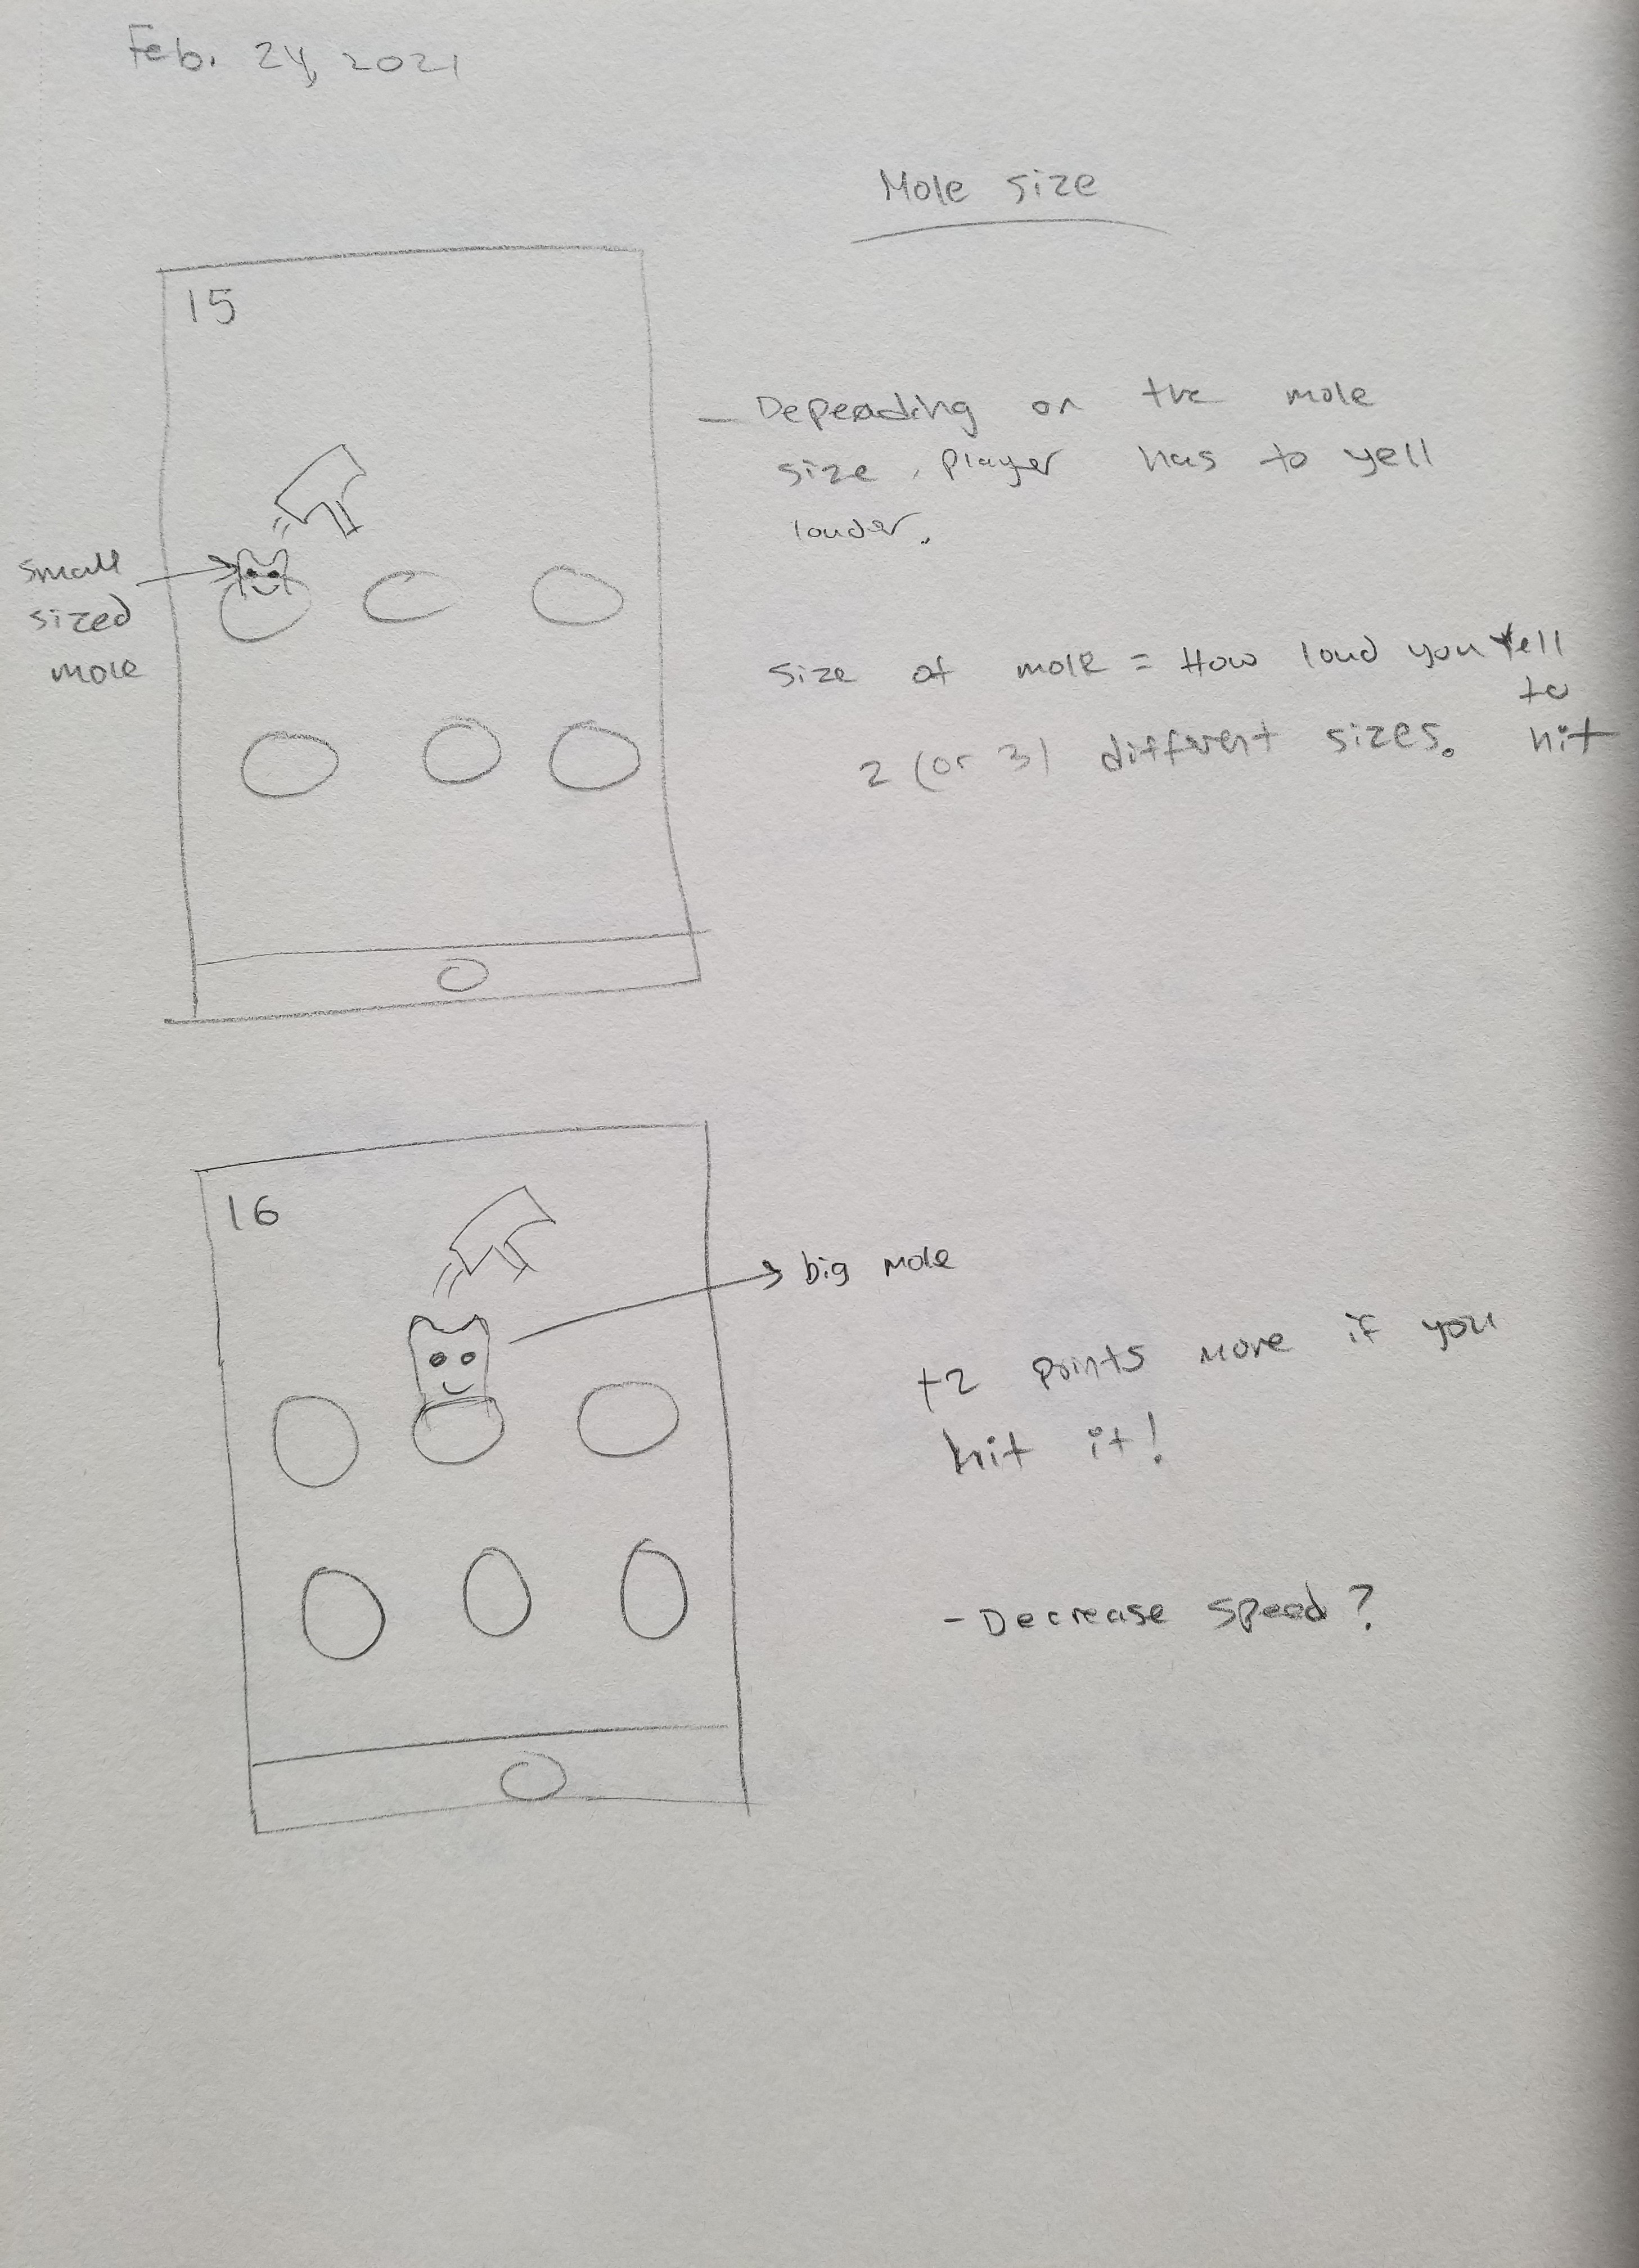 Feb. 24, 2021
Mole size
15
- Depending on the mole
size, player has to yell
louder.
small
sized
mole
size of mole = How loud you Yell
to
2 (or 3) different sizes. hit
16
big mole
+2 points more if you
hit it!
- Decrease speed?